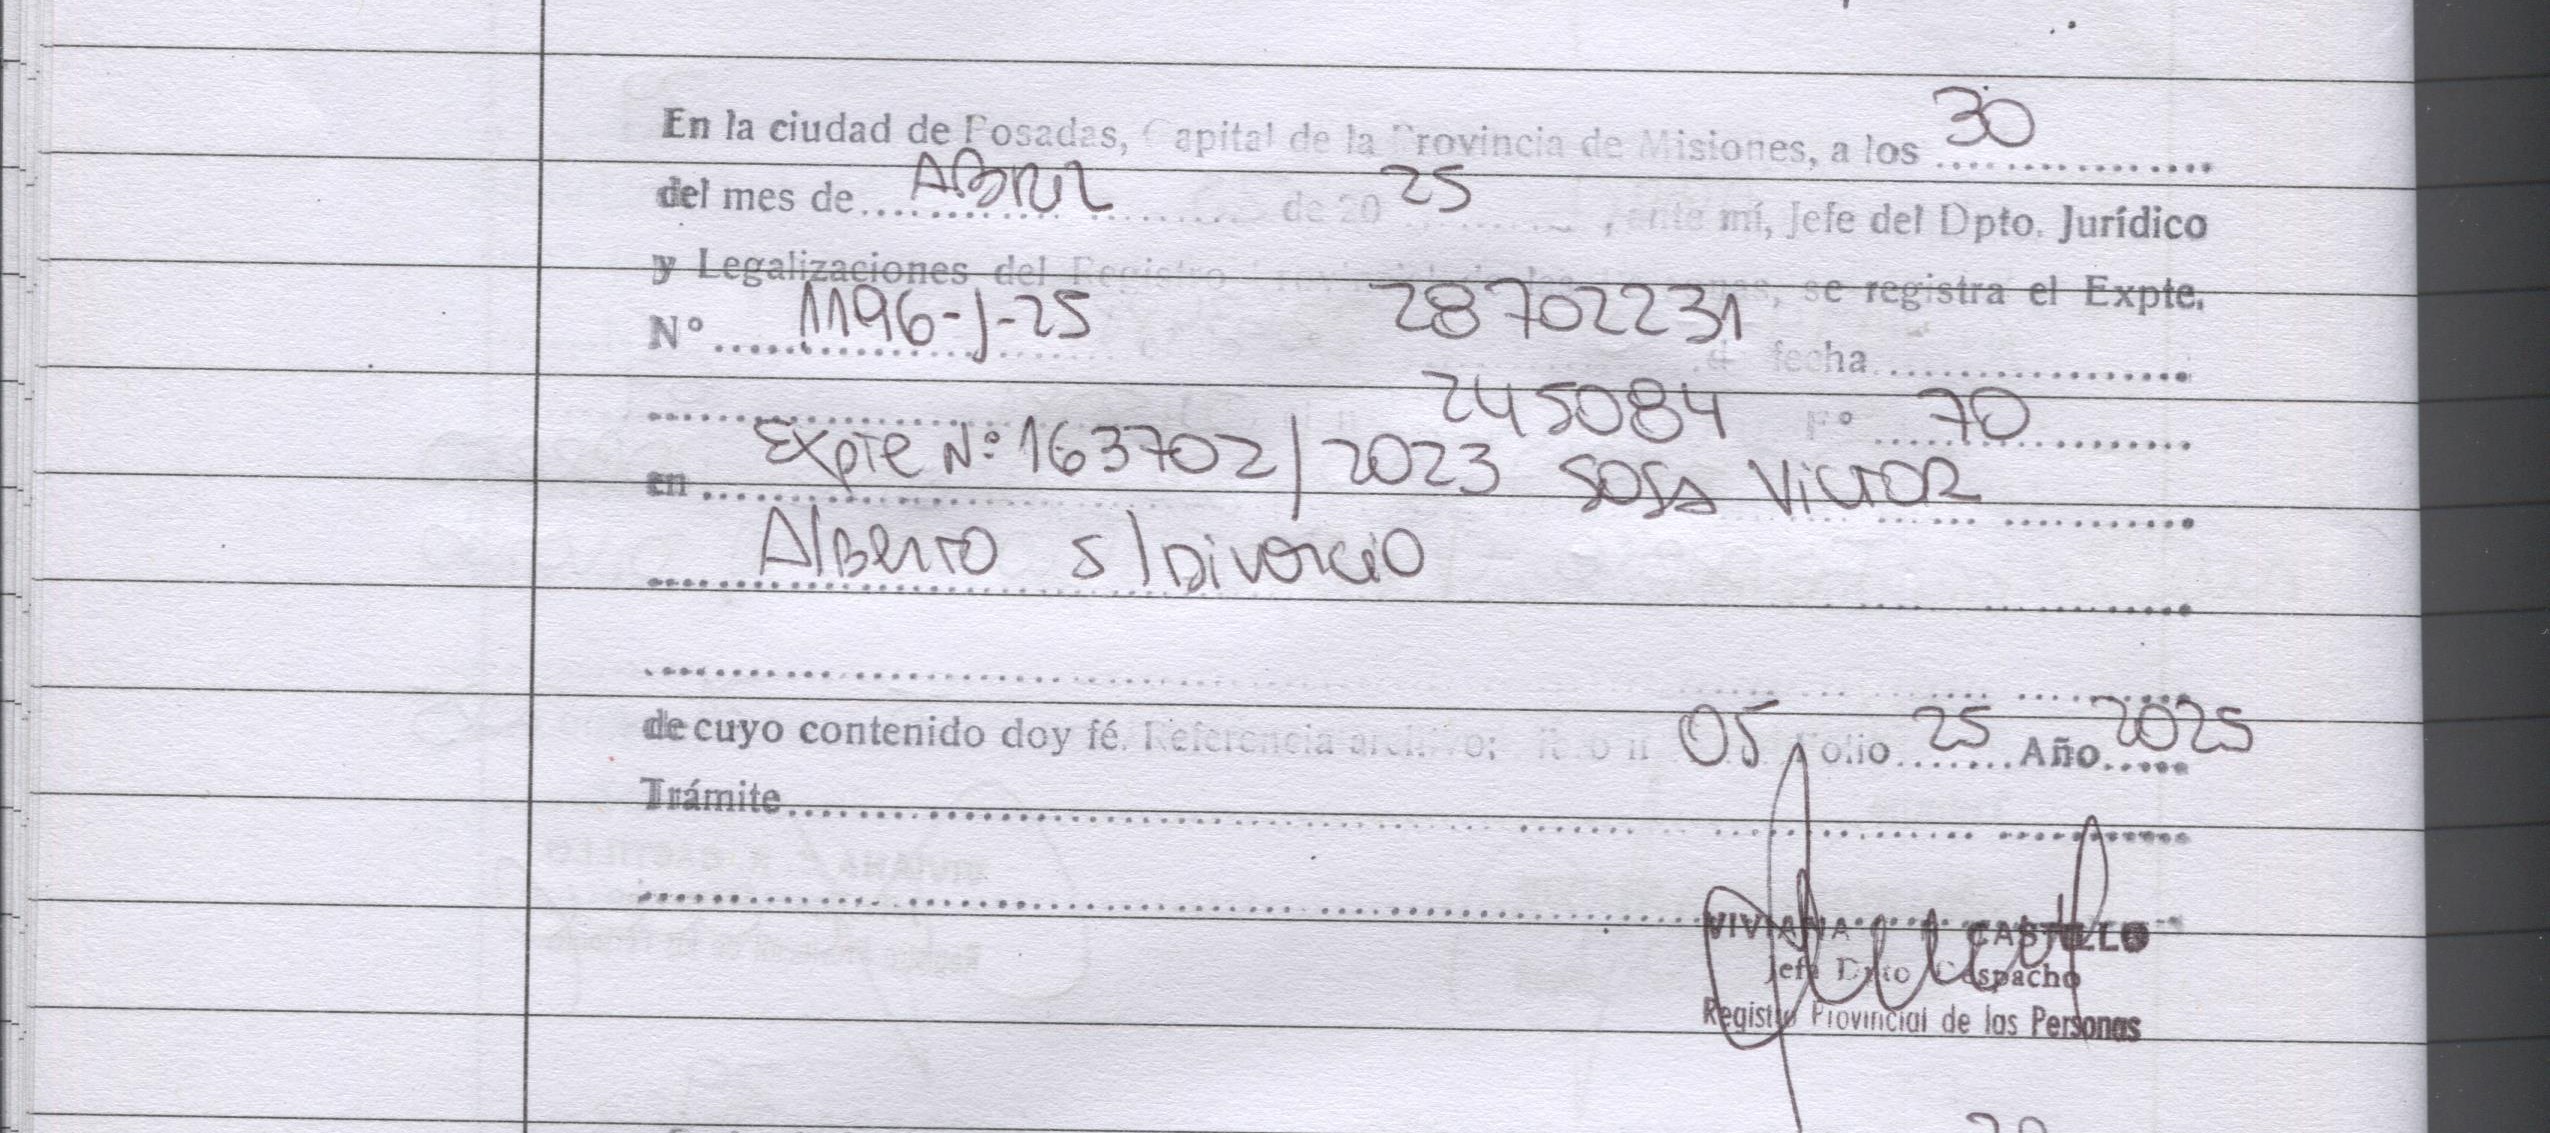 En la ciudad de Posadas, Capital de la Provincia de Misiones, a los 30
del mes de ABRIL de 20 25, ante mí, Jefe del Dpto. Jurídico
y Legalizaciones del Registro Provincial de las Personas, se registra el Expte.
Nº 1196-J-25 28702231 fecha
245084 Fº 70
en Expte Nº 163702/2023 SOSA VICTOR
Alberto s/Divorcio
de cuyo contenido doy fé. Referencia archivo: 05 Folio 25 Año 2025
Trámite
VIVIANA CASTILLO
Jefe Dpto Despacho
Registro Provincial de las Personas